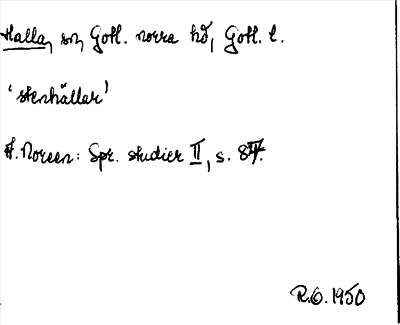 Halla, sn, Gotl. norra hd, Gotl. l.
'stenhällar'
A. Noreen: Spr. studier II, s. 84.
R.O. 1950